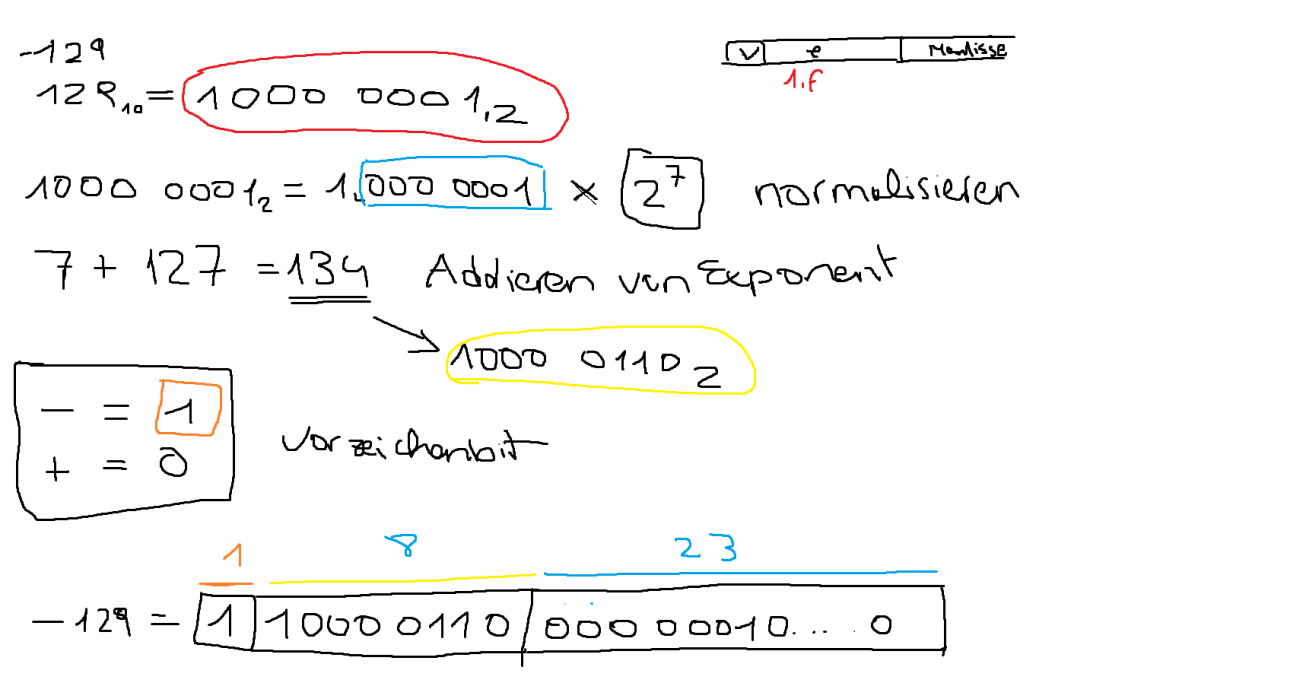 -129
V e Mantisse
1.f
129₁₀ = 1000 0001,₂
1000 0001₂ = 1.000 0001 × 2⁷ normalisieren
7 + 127 = 134 Addieren von Exponent
1000 0110₂
- = 1
+ = 0
Vorzeichenbit
1 8 23
-129 = 1 10000110 000 00010... 0